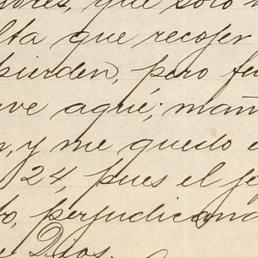 ores, que solo
lta que recoger
pierden, pero
ve aquí; mañ
n, y me quedo e
24, pues el je
o, perjudicand
e Dios.